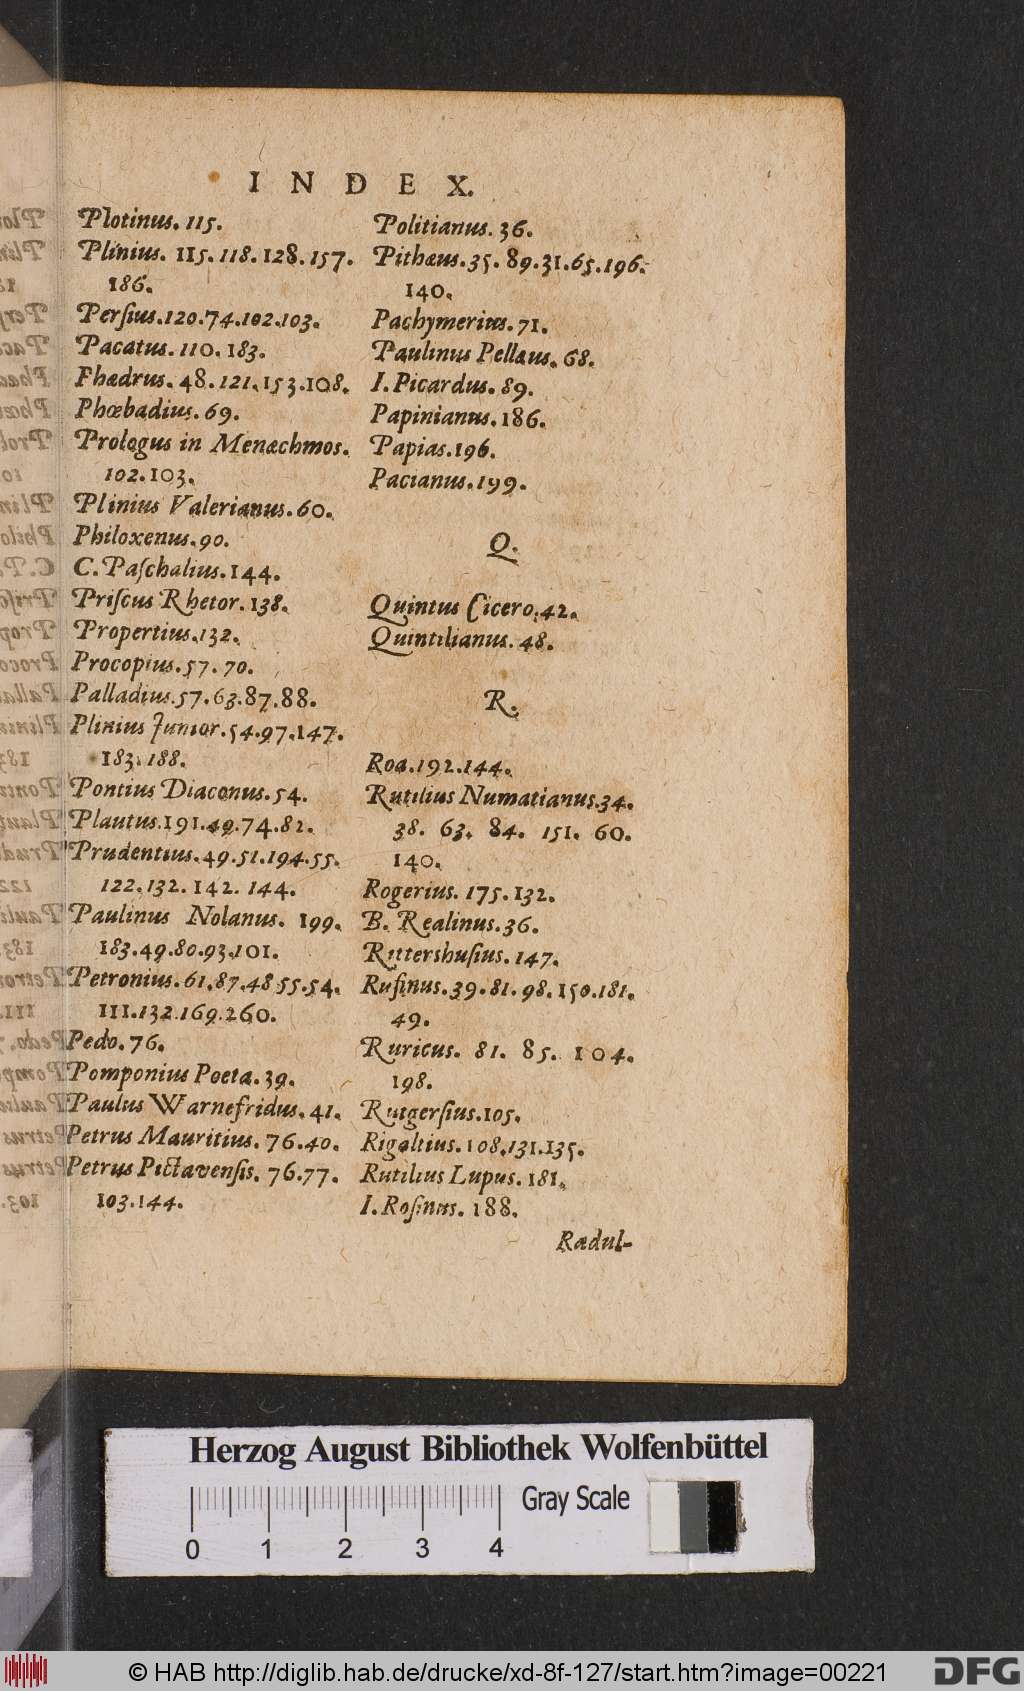 INDEX.
Plotinus. 115.
Plinius. 115. 118. 128. 157.
186.
Perſius. 120. 74. 102. 103.
Pacatus. 110. 183.
Phædrus. 48. 121. 153. 108.
Phœbadius. 69.
Prologus in Menæchmos.
102. 103.
Plinius Valerianus. 60.
Philoxenus. 90.
C. Paſchalius. 144.
Priſcus Rhetor. 138.
Propertius. 132.
Procopius. 57. 70.
Palladius. 57. 63. 87. 88.
Plinius Junior. 54. 97. 147.
183. 188.
Pontius Diaconus. 54.
Plautus. 191. 49. 74. 82.
Prudentius. 49. 51. 194. 55.
122. 132. 142. 144.
Paulinus Nolanus. 199.
183. 49. 80. 93. 101.
Petronius. 61. 87. 48 55. 54.
111. 132. 169. 260.
Pedo. 76.
Pomponius Poeta. 39.
Paulus Warnefridus. 41.
Petrus Mauritius. 76. 40.
Petrus Pictavenſis. 76. 77.
103. 144.
Politianus. 36.
Pithæus. 35. 89. 31. 65. 196.
140.
Pachymerius. 71.
Paulinus Pellæus. 68.
I. Picardus. 89.
Papinianus. 186.
Papias. 196.
Pacianus. 199.
Q.
Quintus Cicero. 42.
Quintilianus. 48.
R.
Roa. 192. 144.
Rutilius Numatianus. 34.
38. 63. 84. 151. 60.
140.
Rogerius. 175. 132.
B. Realinus. 36.
Rittershuſius. 147.
Rufinus. 39. 81. 98. 150. 181.
49.
Ruricus. 81. 85. 104.
198.
Rutgerſius. 105.
Rigaltius. 108. 131. 135.
Rutilius Lupus. 181.
I. Roſinus. 188.
Rædul-
Herzog August Bibliothek Wolfenbüttel
Gray Scale
0 1 2 3 4
© HAB http://diglib.hab.de/drucke/xd-8f-127/start.htm?image=00221
DFG